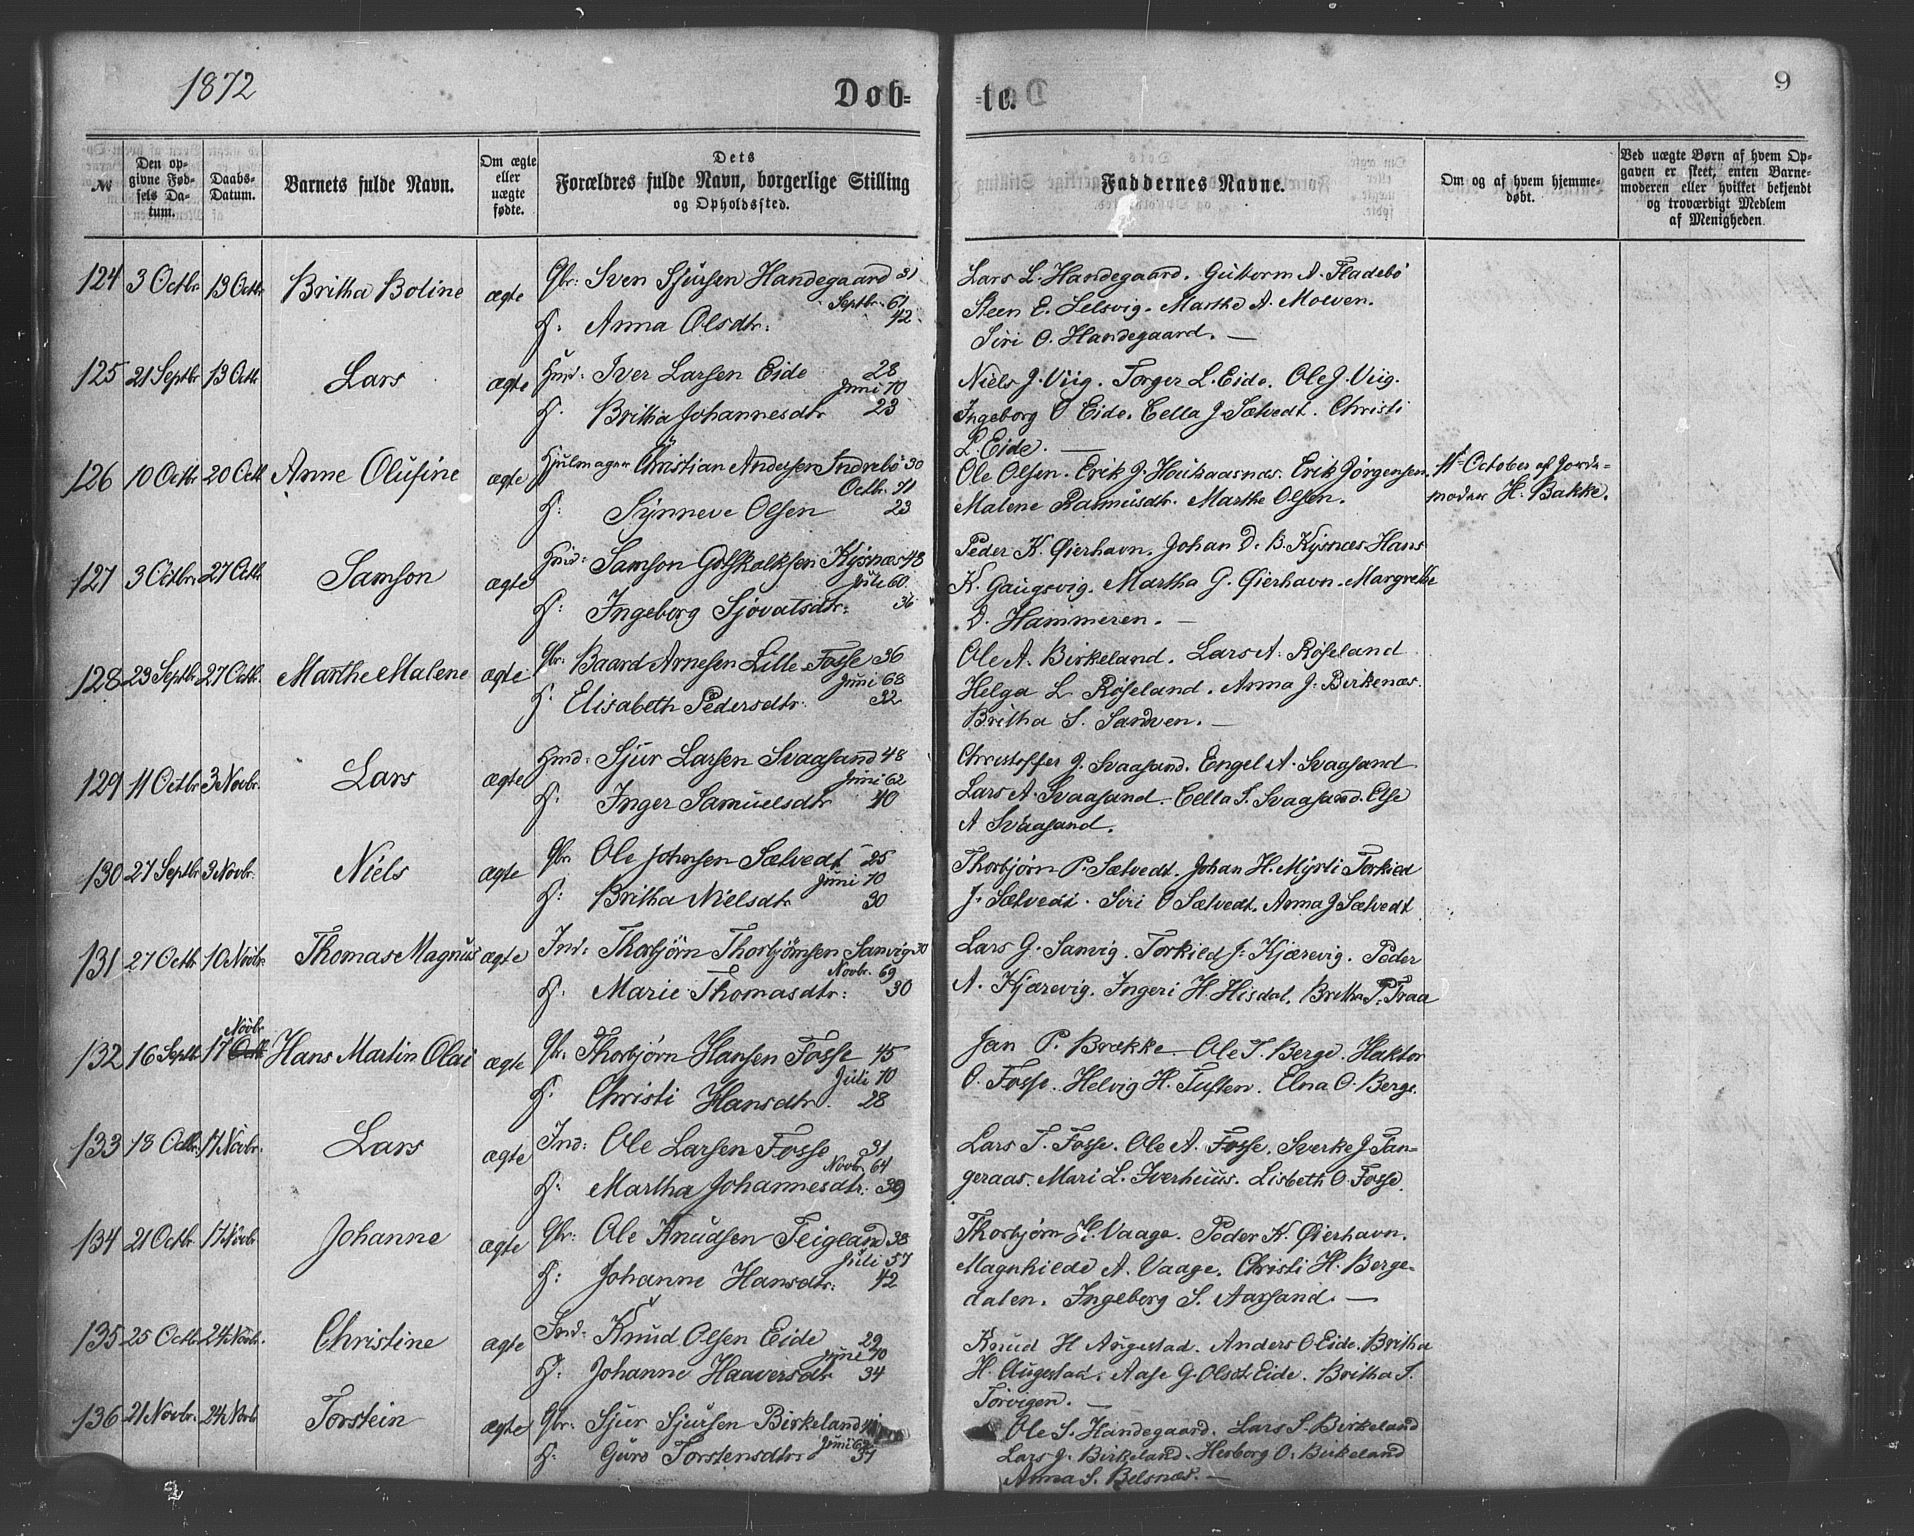 1872
Døb-
te.
9
№
Den op-
givne Fød-
sels Da-
tum.
Daabs-
Datum.
Barnets fulde Navn.
Om ægte
eller
uægte
fødte.
Dets
Forældres fulde Navn, borgerlige Stilling
og Opholdssted.
Faddernes Navne.
Om og af hvem hjemme-
døbt.
Ved uægte Børn af hvem Op-
gaven er skeet, enten Barne-
moderen eller hvilket bekjendt
og troværdigt Medlem
af Menigheden
124 3 Octbr. 13 Octbr Britha Boline ægte Gbr: Sven Sjursen Handegaard 31
Septbr. 61
H. Anna Olsdtr: 42
Lars L. Handegaard. Guttorm A. Fladebö
Steen E. Lelsvig. Marthe A. Moeven.
Siri O. Handegaard. —
125 21 Septbr 13 Octbr Lars ægte Hmd: Iver Larsen Eide 28
Juni 70
H. Britha Johannesdtr 23
Niels J. Viig. Torger L. Eide. Ole J. Viig.
Ingeborg O Eide. Cella J. Sælvedt. Christi
L. Eide. —
126 10 Octbr 20 Octbr Anne Olufine ægte Hjulmager Christian Andersen Indrebö 30
Octbr. 71
H: Synneve Olsen 23
Ole Olsen. Erik J. Houkaasnæs. Erik Jörgensen.
Malene Rasmusdtr. Marthe Olsen.
11te October af Jorde-
moder H. Bakke.
127 3 Octbr. 27 Octbr. Samson ægte Hmd: Samson Gotskalksen Kysnæs 48
Juli 60
H: Ingeborg Sjovatsdtr: 36
Peder K. Øierhavn. Johan D. B. Kysnæs. Hans
K. Gaugsvig. Martha G. Øierhavn. Margrethe
D. Hammeren. —
128 23 Septbr 27 Octbr. Marthe Malene ægte Gbr: Baard Arnesen Lille Fosse 36
Juni 68
H. Elisabeth Pedersdtr: 32
Ole A. Birkeland. Lars A. Röseland
Helga L Röseland. Anna J. Birkenæs.
Britha S. Sandven. —
129 11 Octbr 3 Novbr. Lars ægte Hmd: Sjur Larsen Svaasand 48
Juni 62
H: Inger Samuelsdtr 40
Christoffer J. Svaasand. Engel A. Svaasand
Lars A. Svaasand. Cella S. Svaasand. Else
A Svaasand.
130 27 Septbr 3 Novbr. Niels ægte Gbr: Ole Johnsen Sælvedt 25
Juni 70
H: Britha Nielsdtr 30
Thorbjörn P. Sælvedt. Johan H. Myrli Torkied
J. Sælvedt. Siri O Sælvedt. Anna J Sælvedt
131 27 Octbr 10 Novbr. Thomas Magnus ægte Ind: Thorbjörn Thorbjörnsen Sanvig 30
Novbr. 69
H. Marie Thomasdtr: 30
Lars G. Sanvig. Torkild J. Kjærevig. Peder
A. Kjærevig. Ingeri H. Hisdal. Britha P. Traa
Novbr
132 16 Septbr 17 Octbr Hans Martin Olai ægte Gbr: Thorbjörn Hansen Fosse 45
Juli 70
H. Christi Hansdtr. 28
Jan P. Brække. Ole T. Berge. Haktor
O. Fosse. Helvig H. Tuften. Elna O. Berge.
133 18 Octbr. 17 Novbr. Lars ægte Ind: Ole Larsen Fosse 31
Novbr. 64
H. Martha Johannesdtr: 39
Lars T. Fosse. Ole A. Fosse. Sverke J Tan-
geraas. Mari L. Iverhuus. Lisbeth O. Fosse.
134 21 Octbr 17 Novbr Johanne ægte Gbr: Ole Knudsen Teigland 38
Juli 57
H: Johanne Hansdtr: 42
Thorbjörn H. Vaage. Peder K. Øierhavn.
Magnhilde A. Vaage. Christi H. Berge-
dalen. Ingeborg S. Aarsand. —
135 25 Octbr 24 Novbr. Christine ægte Ind: Knud Olsen Eide 29
Juni 70
H. Johanne Haaversdtr 34
Knud H Augestad. Anders O Eide. Britha
H. Augestad. Aase G. Olsdt Eide. Britha S.
Torvigen. —
136 21 Novbr. 24 Novb Torstein ægte Gbr: Sjur Sjursen Birkeland
Juni
H. Guro Torstensdtr:
Ole S. Handegaard. Lars S. Birkeland
Lars J. Birkeland. Herborg O. Birkeland
Anna S. Belsnæs. —